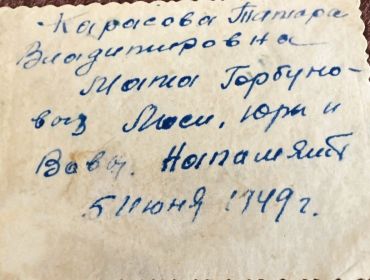 Карасова Тамара
Владимировна
Мама Горбуно-
вых Люси, Юры и
Вовы. На память
5 июня 1949 г.